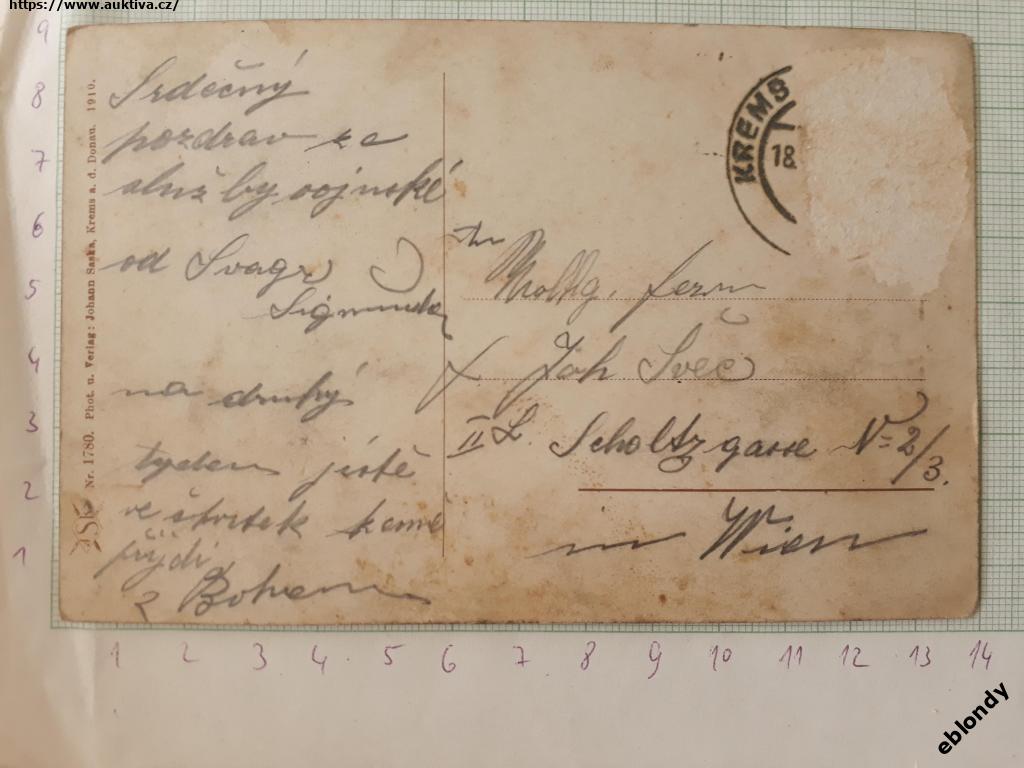 https://www.auktiva.cz/
Nr. 1780. Phot. u. Verlag: Johann Saska, Krems a. d. Donau. 1910.
Srdečný
pozdrav ze
služby vojnské
od Švagr
Sigmunda
na druhý
tyden jistě
ve čtvrtek kemě
příjdi
z Bohem
KREMS
18
An
Joh Švec
II L. Scholtzgasse N= 2/3.
in Wien
9
8
7
6
5
4
3
2
1
1 2 3 4 5 6 7 8 9 10 11 12 13 14
eblondy